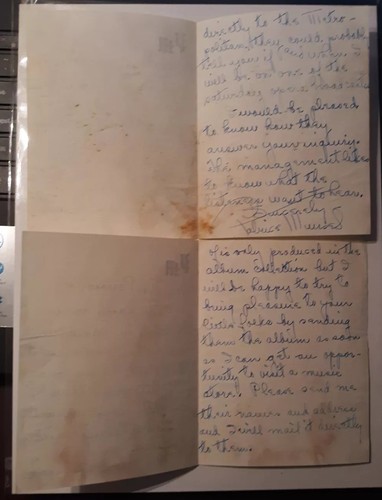 directly to the Metro-
politan, they could probably
tell you if & is when I
will be on one of the
Saturday opera broadcasts
I would be pleased
to know how they
answer your inquiry.
The management likes
to know what the
listeners want to hear.
Sincerely
Patrice Munsel
is only produced in the
album collection but I
will be happy to try to
bring pleasure to your
little folks by sending
them the album as soon
as I can get an oppor-
tunity to visit a music
store. Please send me
their names and address
and I will mail it directly
to them.